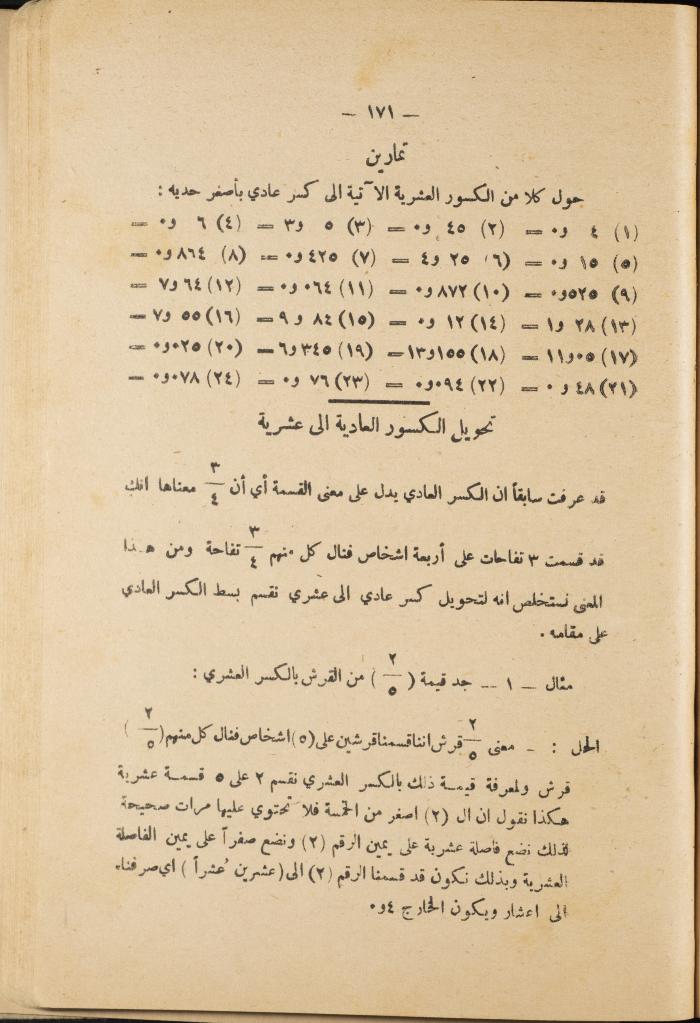 — ١٧١ —
تمارين
حول كلا من الكسور العشرية الآتية الى كسر عادي بأصغر حديه :
(١) ٤ و٠ = (٢) ٤٥ و٠ = (٣) ٥ و٣ = (٤) ٦ و٠ =
(٥) ١٥ و٠ = (٦) ٢٥ و٤ = (٧) ٤٢٥و٠ = (٨) ٨٦٤و٠ =
(٩) ٥٢٥و٠ = (١٠) ٨٧٢و٠ = (١١) ٠٦٤و٠ = (١٢) ٦٤و٧ =
(١٣) ٢٨ و١ = (١٤) ١٢ و٠ = (١٥) ٨٤ و٩ = (١٦) ٥٥ و٧ =
(١٧) ٠٥و١١ = (١٨) ١٥٥و١٣ = (١٩) ٣٤٥و٦ = (٢٠) ٠٢٥و٠ =
(٢١) ٤٨ و٠ = (٢٢) ٠٩٤و٠ = (٢٣) ٧٦ و٠ = (٢٤) ٠٧٨و٠ =
تحويل الكسور العادية الى عشرية
قد عرفت سابقاً ان الكسر العادي يدل على معنى القسمة أي أن ٣/٤ معناها انك
قد قسمت ٣ تفاحات على أربعة اشخاص فنال كل منهم ٣/٤ تفاحة ومن هذا
المعنى نستخلص انه لتحويل كسر عادي الى عشري نقسم بسط الكسر العادي
على مقامه .
مثال — ١ — جد قيمة ( ٢/٥ ) من القرش بالكسر العشري :
الحل : — معنى ٢/٥ قرش اننا قسمنا قرشين على (٥) اشخاص فنال كل منهم ( ٢/٥ )
قرش ولمعرفة قيمة ذلك بالكسر العشري نقسم ٢ على ٥ قسمة عشرية
هكذا نقول ان ال (٢) اصغر من الخمسة فلا تحتوي عليها مرات صحيحة
لذلك نضع فاصلة عشرية على يمين الرقم (٢) ونضع صفراً على يمين الفاصلة
العشرية وبذلك نكون قد قسمنا الرقم (٢) الى (عشرين عُشراً ) اي صرفناه
الى اعشار ويكون الخارج ٤و٠